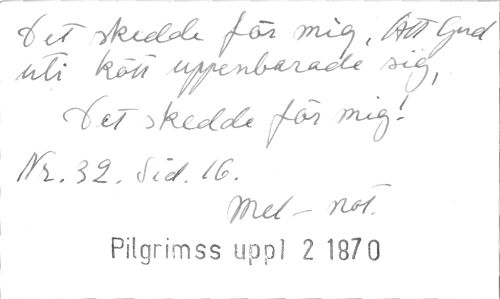 Det skedde för mig, Att Gud
uti kött uppenbarade sig,
Det skedde för mig!
Nr. 32. Sid. 16.
Mel – not.
Pilgrimss uppl 2 1870